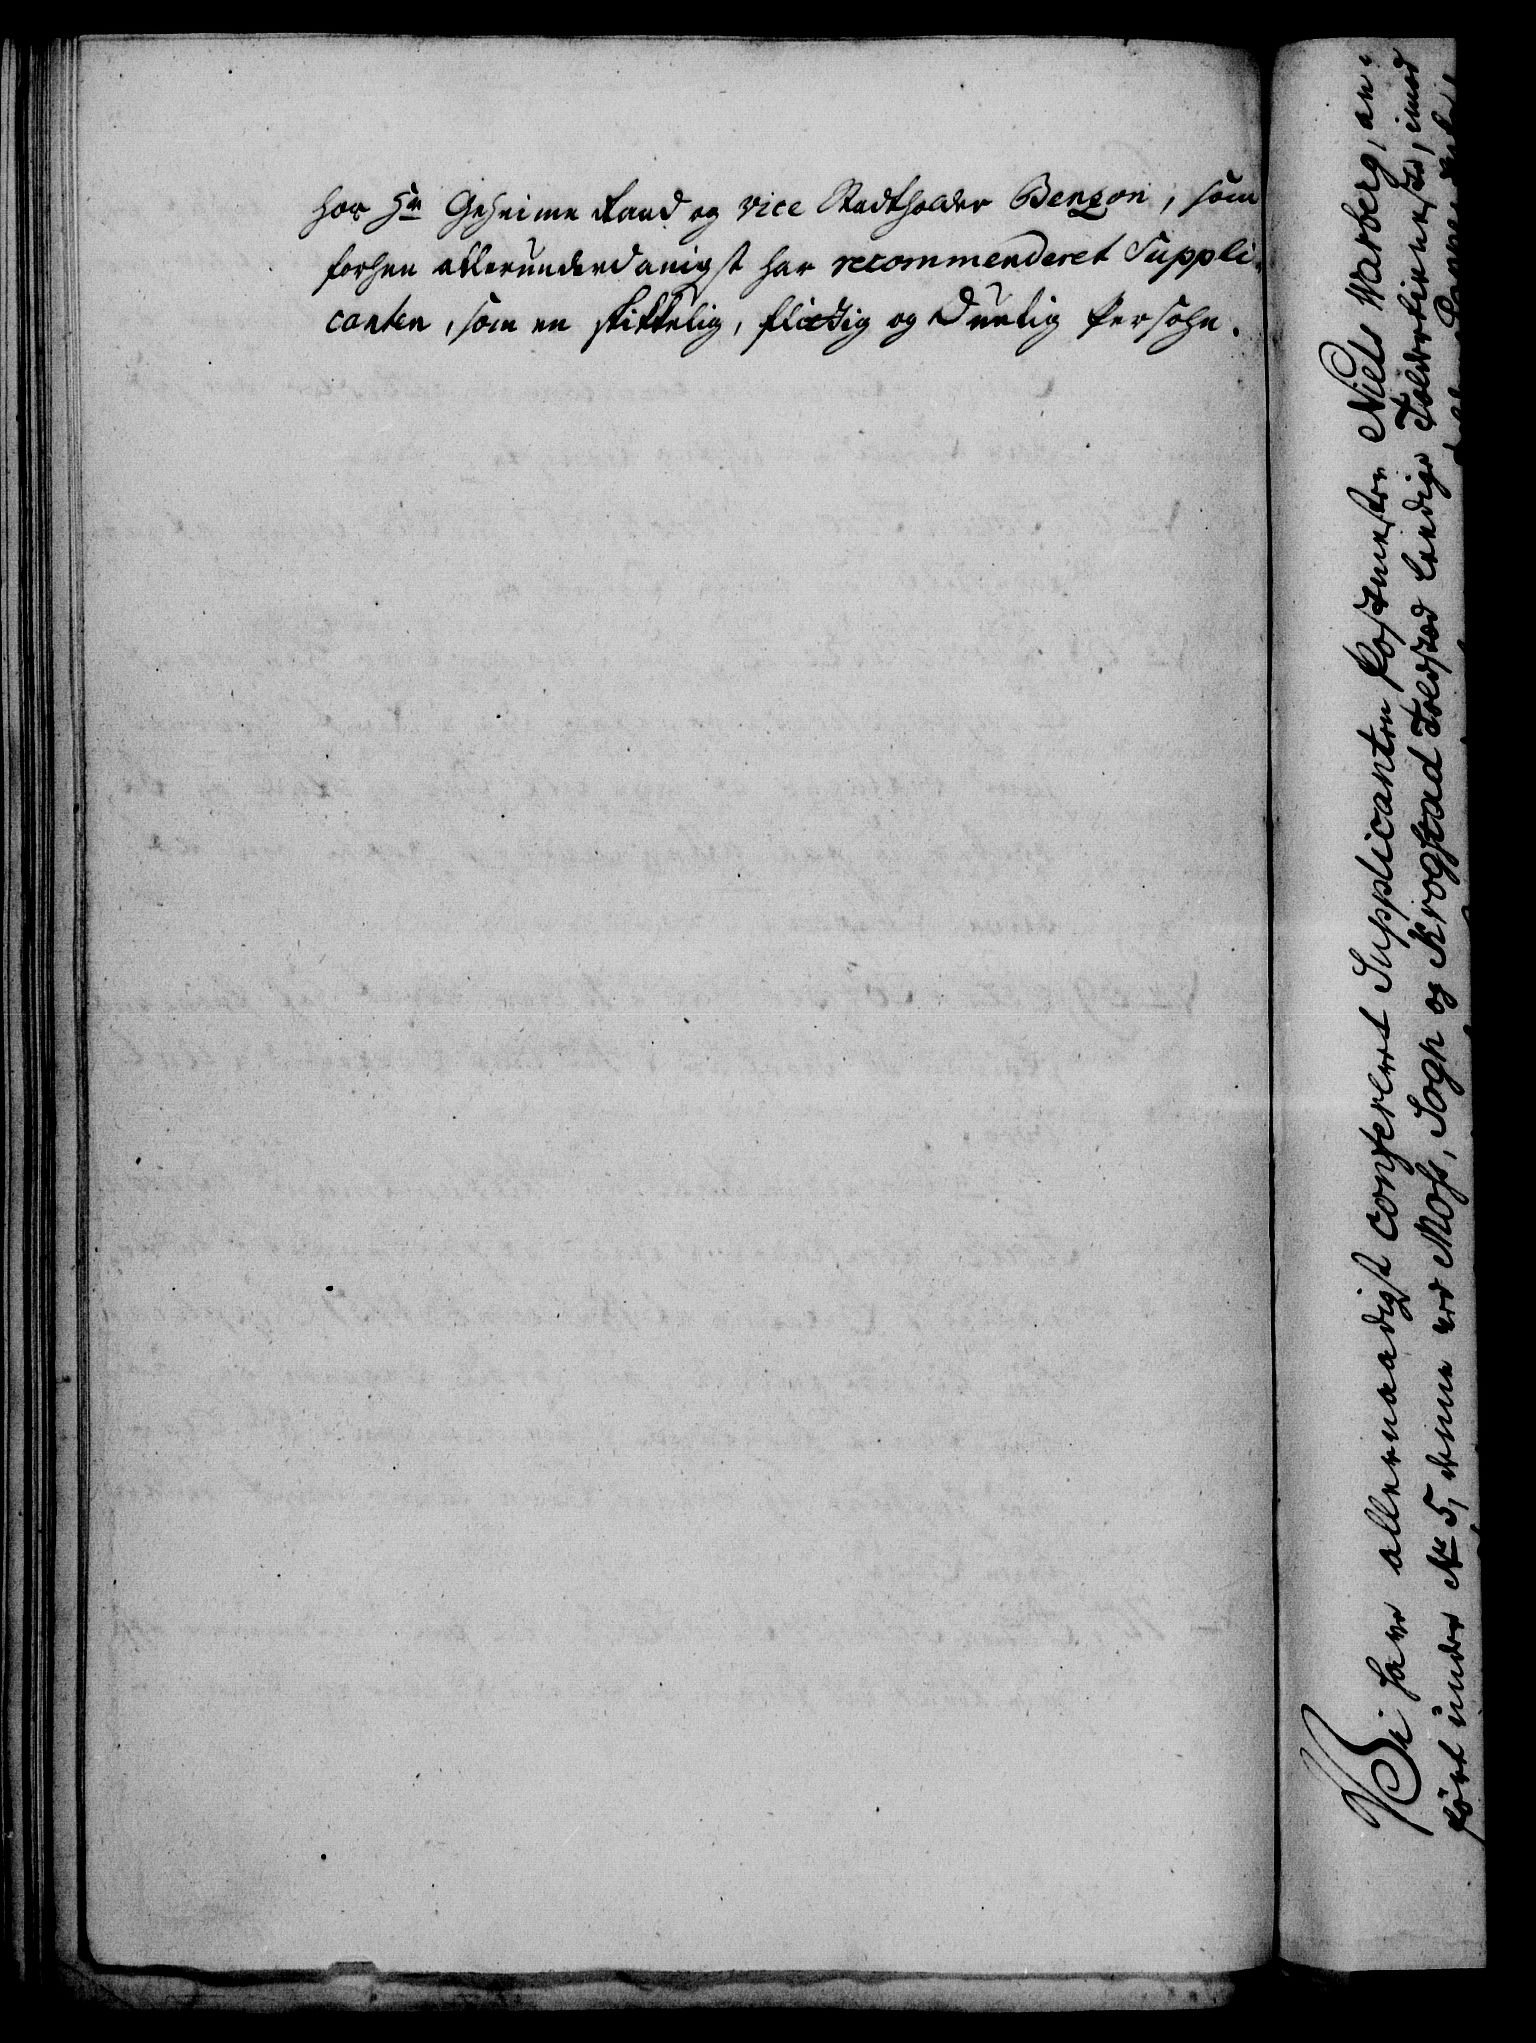 hos Hr Geheime Raad og vice Stadtholder Benzon, som
forhen allerunderdanigst har recommenderet Suppli-
canten, som en skikkelig, flictig og duelig Persohn.
Vi have allernaadigst confereret Supplicanten Postmester Niels Warberg, an-
ført under No 5, denne ved Moss, Sogn og Krogstad Toldsted ledige Toldertieneste, imod